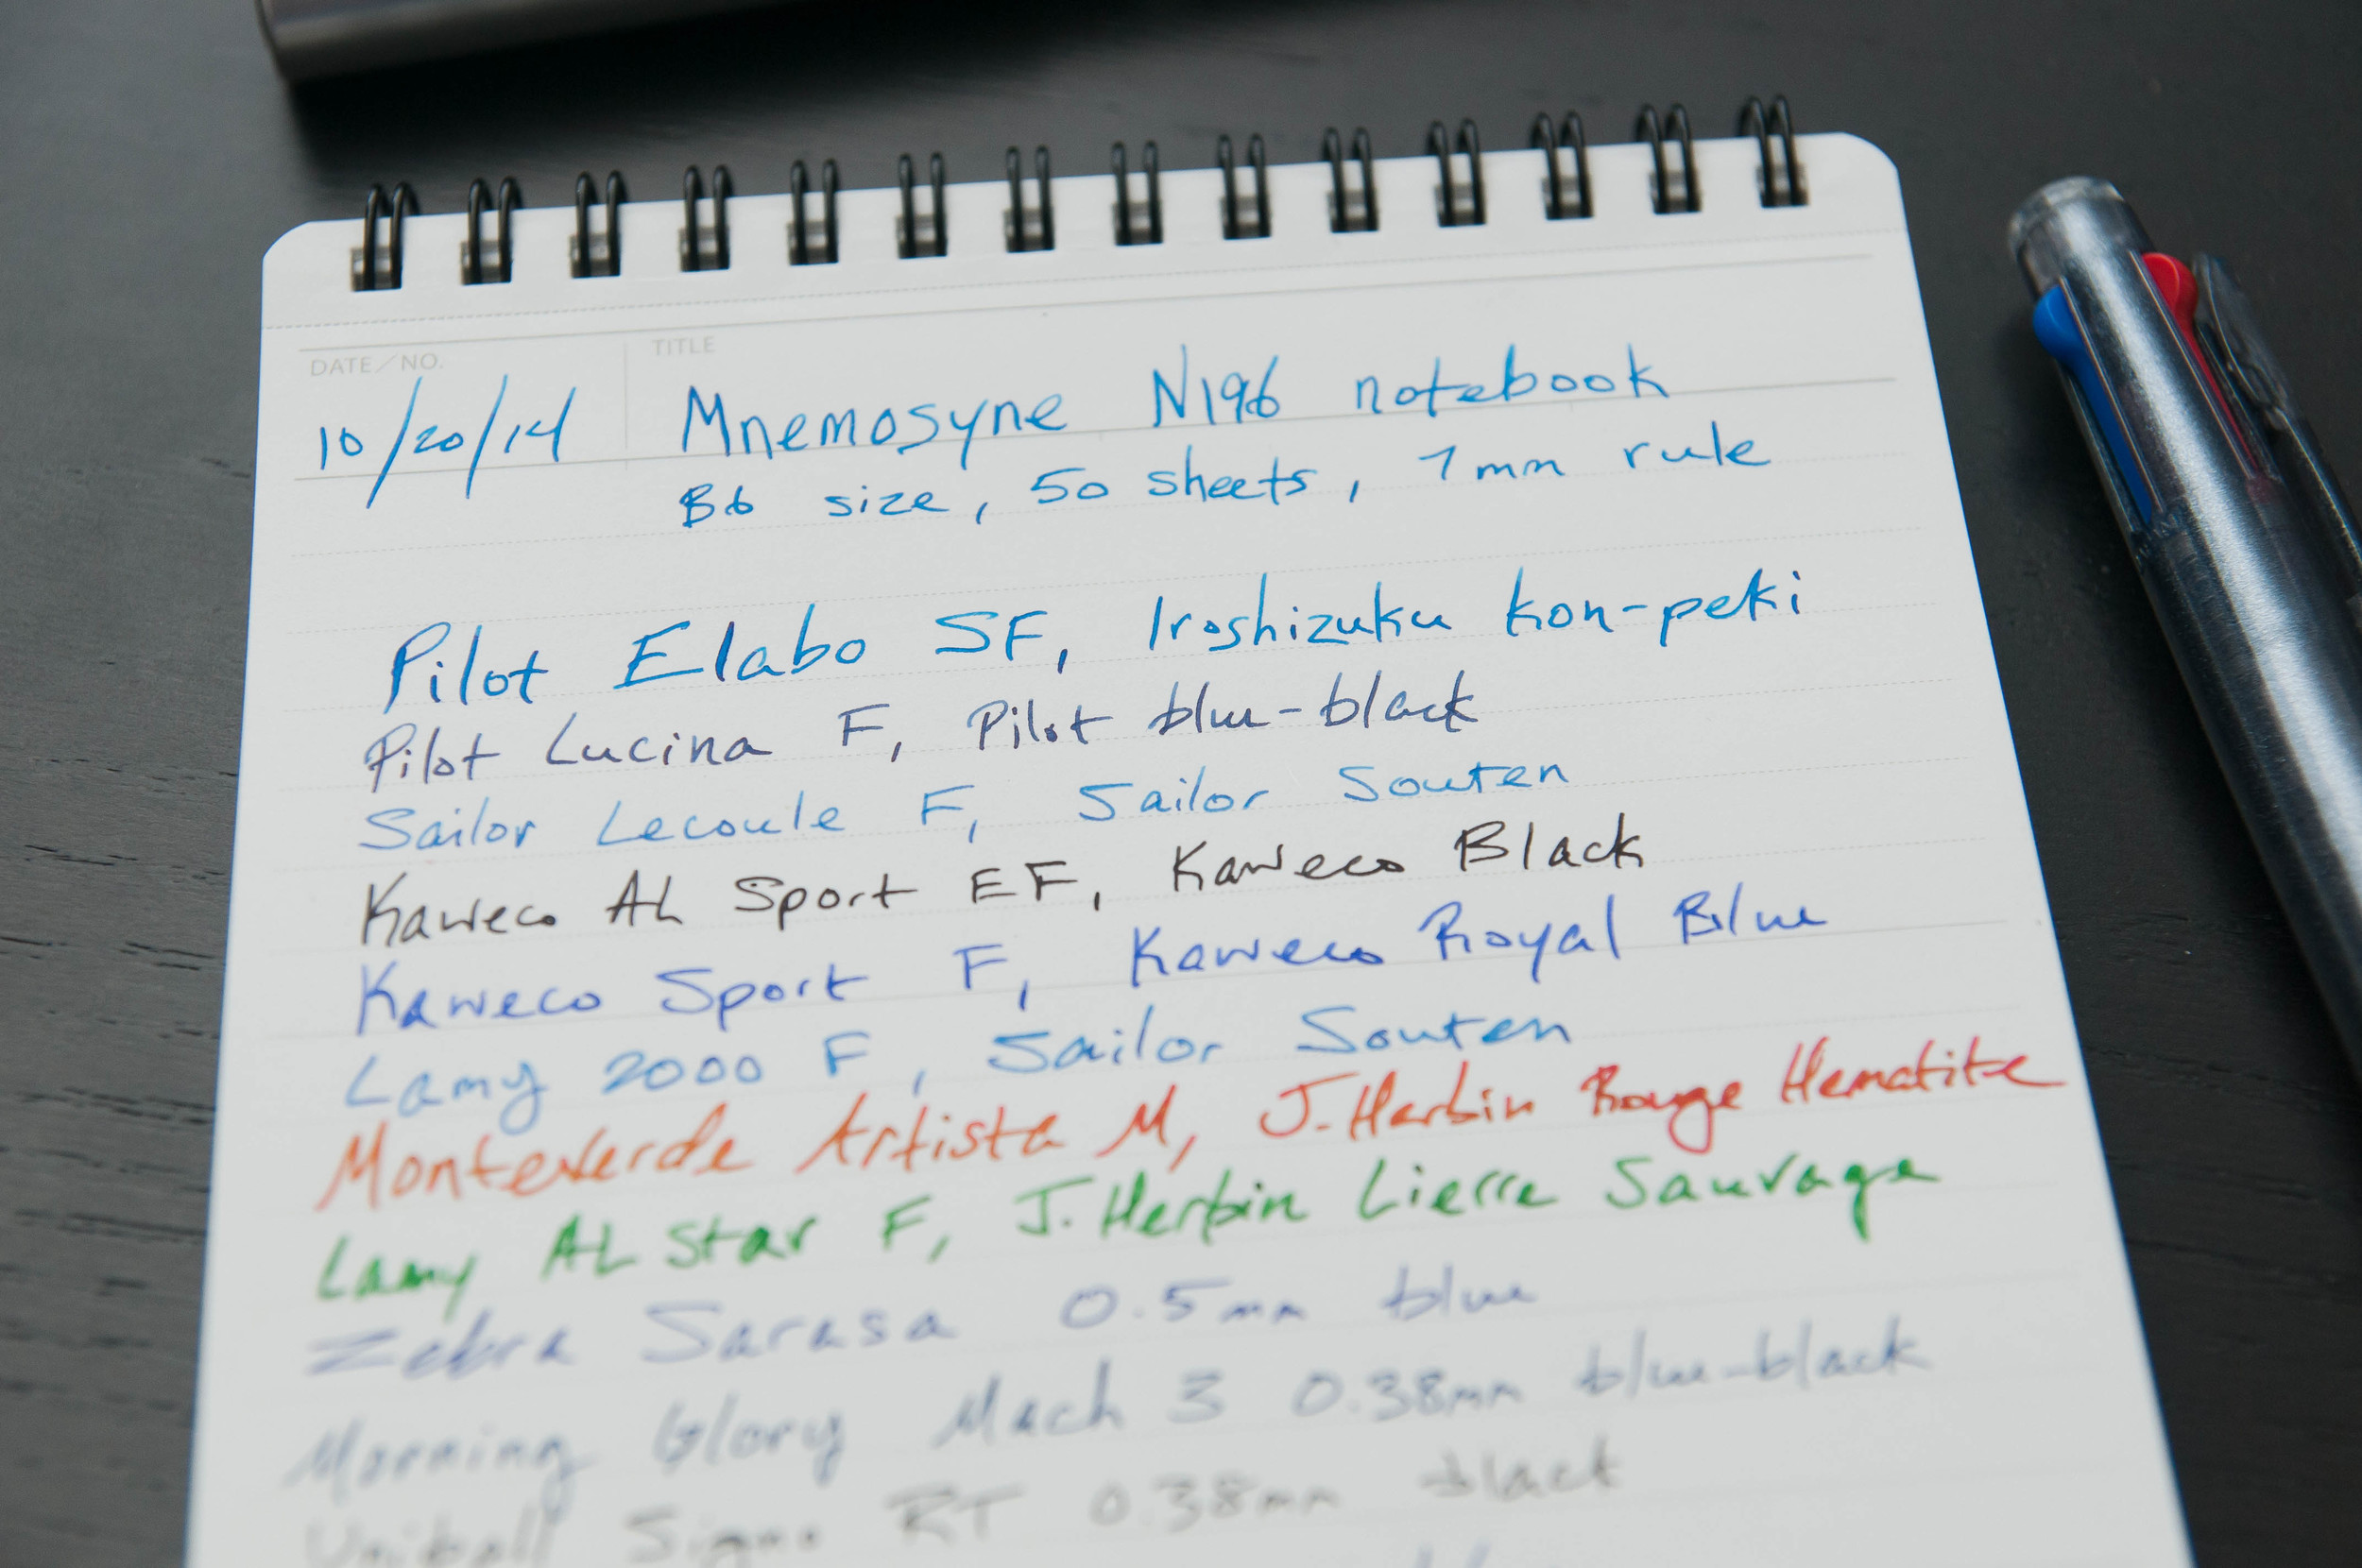 DATE/NO.
TITLE
10/20/14
Mnemosyne N196 notebook
B6 size, 50 sheets, 7mm rule
Pilot Elabo SF, Iroshizuku kon-peki
Pilot Lucina F, Pilot blue-black
Sailor Lecoule F, Sailor Souten
Kaweco AL Sport EF, Kaweco Black
Kaweco Sport F, Kaweco Royal Blue
Lamy 2000 F, Sailor Souten
Monteverde Artista M, J. Herbin Rouge Hematite
Lamy AL Star F, J. Herbin Lierre Sauvage
Zebra Sarasa 0.5mm blue
Morning Glory Mach 3 0.38mm blue-black
Uniball Signo RT 0.38mm black